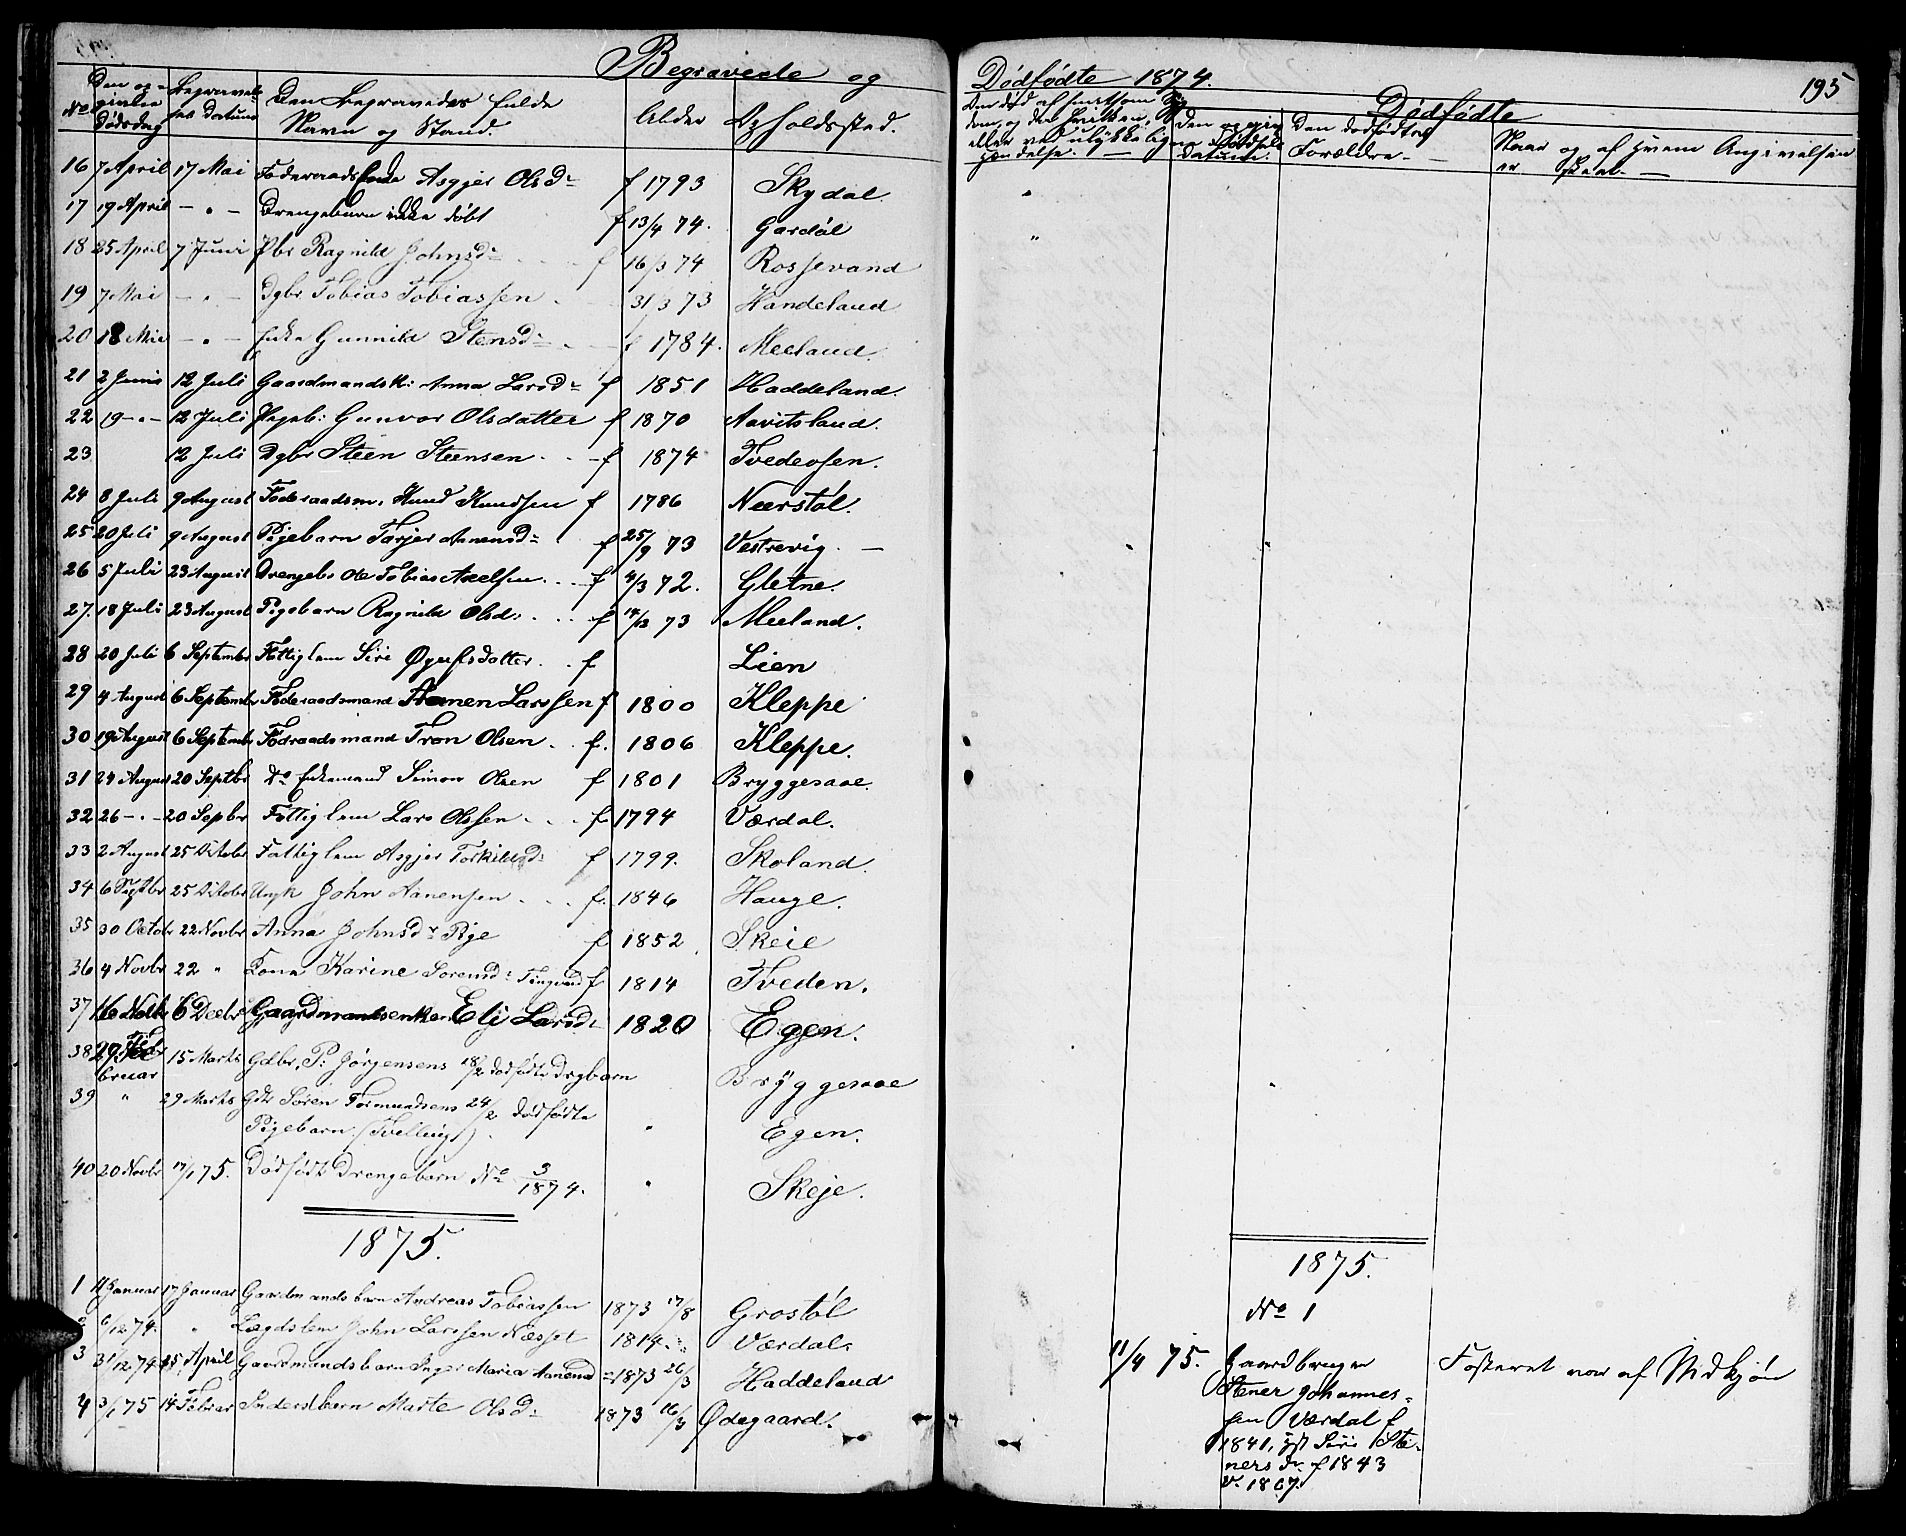 Begravede og
Dødfødte 1874.
195
No
Den op-
givne
Dødsdag
Begravel-
ses Datum
Den Begravedes fulde
Navn og Stand.
Alder
Opholdssted.
Dødfødte
Den opgivne
Fødsels
datum.
Den dødfødtes
Forældre
Naar og af hvem Angivelsen
er skeet.
16 7 April 17 Mai Asgjer Olsd: f 1793 Skydal.
17 19 April — " — Drengebarn ikke døbt f 13/4 74. Gardøl
18 25 April 7 Juni Pbr Ragnild Johnsd: f 16/3 74 Rossevand
19 7 Mai — " — Dgbr Tobias Tobiassen 31/3 73 Handeland
20 18 Mai — " — Enke Gunnild Stensd: f 1784. Meeland.
21 2 Junis 12 Juli Gaardmandsk: Anna Larsd: f 1851 Haddeland.
22 19 — " — 12 Juli Pigeb: Gunvor Olsdatter f 1870 Aavitsland.
23 12 Juli Dgbr Steen Steensen f 1874 Tvedeosen.
24 8 Juli 9 August Føderaadsm. Knud Knudsen f 1786 Neerstøl.
25 20 Juli 9 August Pigebarn Tarjer Aanensd: f 25/9 73 Vestrevig. —
26 5 Juli 23 August Drengeb: Ole Tobias Axelsen f 4/3 72. Gletne.
27. 18 Juli 23 August Pigebarn Ragnild Olsd: f 14/12 73 Meeland.
28 20 Juli 6 September Fattiglem Siri f Lien
29 4 August 6 September Føderaadsmand Aanen Larssen f 1800 Kleppe
30 19 August 6 Septembr Fødraadsmand Tron Olsen f. 1806 Kleppe.
31 24 August 20 Septbr do Enkemand Simon Olsen f 1801 Bryggesaae.
32 26 — " — 20 Sepbr Fattiglem Lars Olssen f 1794 Værdal.
33 2 August 25 Octobr Fattiglem Asgjer Torkildsd: f 1799. Skoland.
34 6 Septbr 25 Octobr Ungk John Aanensen f. 1846 Hauge.
35 30 Octobr 22 Novbr Anna Johnsdr Pige f 1852 Skeie
36 4 Novbr 22 " Tone Karine Sorensd: f 1814 Tveden.
37 16 Novbr 6 Decbr Gaardmandsenke Eli Larsd: 1820 Egen.
38 Februar 15 Marts Gdbr. P: Jørgensens 18/2 dødfødte Drgbarn Bryggesaae
39 " 29 Marts Gdb Søren Tormundsens 24/2 dødfødte
Pigebarn (Tvilling). " Egen.
40 20 Novbr 17/1 75. Dødfødt Drengebarn No 3/1874. " Skeje.
1875.
1 11 Januar 17 Januar Gaardmandsbarn Andreas Tobiassen 1873 17/8 Grostøl
2 6/12 74. " Lægdslem John Larssen Næsset 1814. Værdal.
3 31/12 74 25 April Gaardmandsbarn Inger Maria Aanensd: 1873 26/3 Haddeland
4 3/1 75 14 Februar Inderstbarn Marte Olsd: 1873 16/3 Ødegaard.
1875.
No 1
11/4 75. Gaardbruger
Stener Johannes-
sen Værdal f
1841, gft Siri Ste-
nersdr f 1843
V. 1867.
Fosteret var af Midkjøn